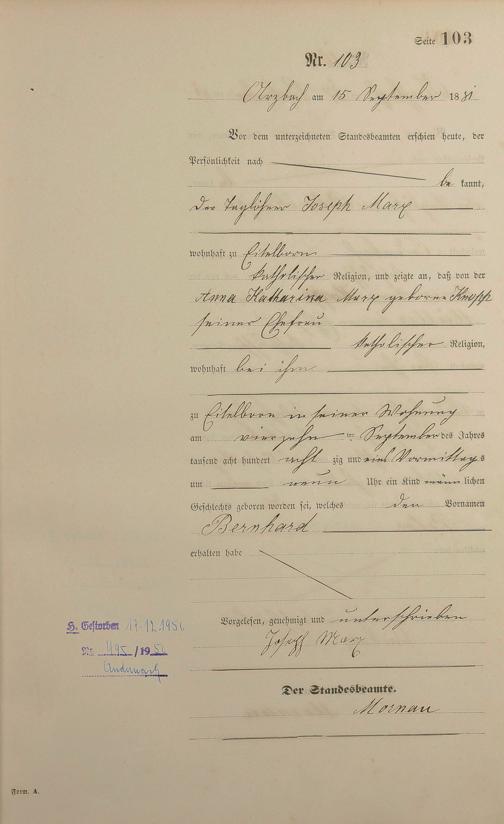 Seite 103
Nr. 103
Arzbach am 15 September 1881
Vor dem unterzeichneten Standesbeamten erschien heute, der
Persönlichkeit nach
be kannt,
der Taglöhner Joseph Marx
wohnhaft zu Eitelborn
katholischer Religion, und zeigte an, daß von der
Anna Katharina Marx geborne
seiner Ehefrau
katholischer Religion,
wohnhaft bei ihm
zu Eitelborn in seiner Wohnung
am vierzehn ten September des Jahres
tausend acht hundert acht zig und eins Vormittags
um neun Uhr ein Kind männ lichen
Geschlechts geboren worden sei, welches den Vornamen
Bernhard
erhalten habe
Vorgelesen, genehmigt und unterschrieben
Joseph Marx
H. Gestorben 17.12.1956
Nr. 495/1956
Andernach
Der Standesbeamte.
Form. A.